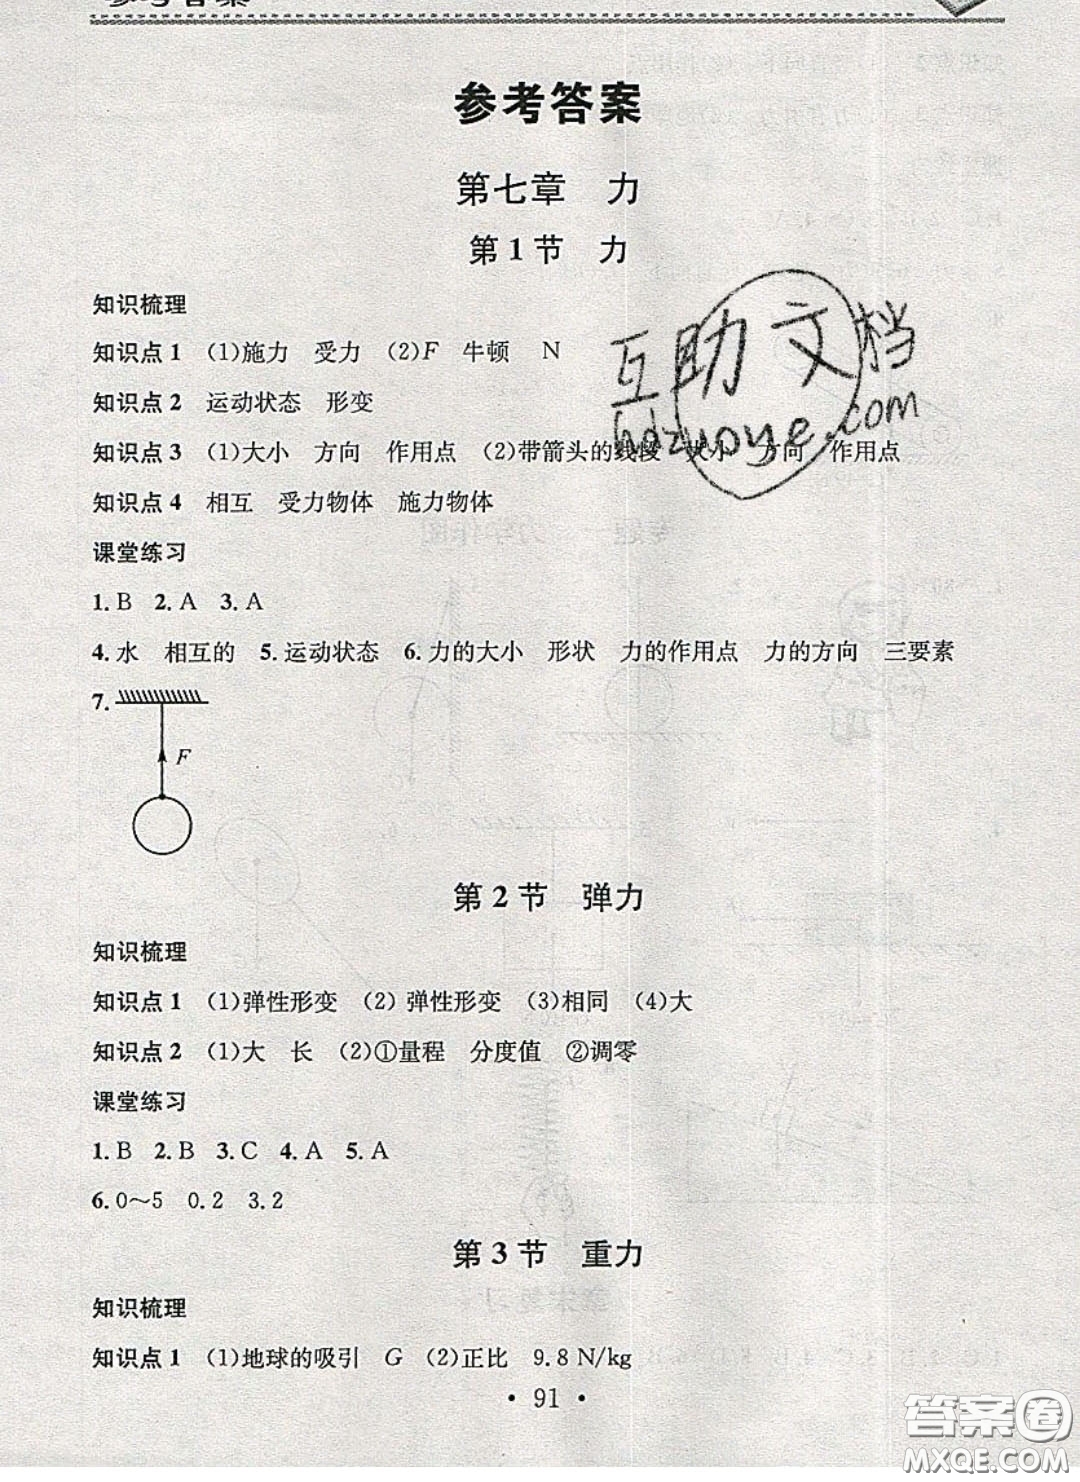 参考答案
参考答案
第七章 力
第1节 力
知识梳理
知识点1 (1)施力 受力 (2)F 牛顿 N
知识点2 运动状态 形变
知识点3 (1)大小 方向 作用点 (2)带箭头的线段 大小 方向 作用点
知识点4 相互 受力物体 施力物体
课堂练习
1.B 2.A 3.A
4.水 相互的 5.运动状态 6.力的大小 形状 力的作用点 力的方向 三要素
7.
F
第2节 弹力
知识梳理
知识点1 (1)弹性形变 (2)弹性形变 (3)相同 (4)大
知识点2 (1)大 长 (2)①量程 分度值 ②调零
课堂练习
1.B 2.B 3.C 4.A 5.A
6.0～5 0.2 3.2
第3节 重力
知识梳理
知识点1 (1)地球的吸引 G (2)正比 9.8 N/kg
· 91 ·
互助文档
hdzuoye.com
答案圈
MXQE.COM